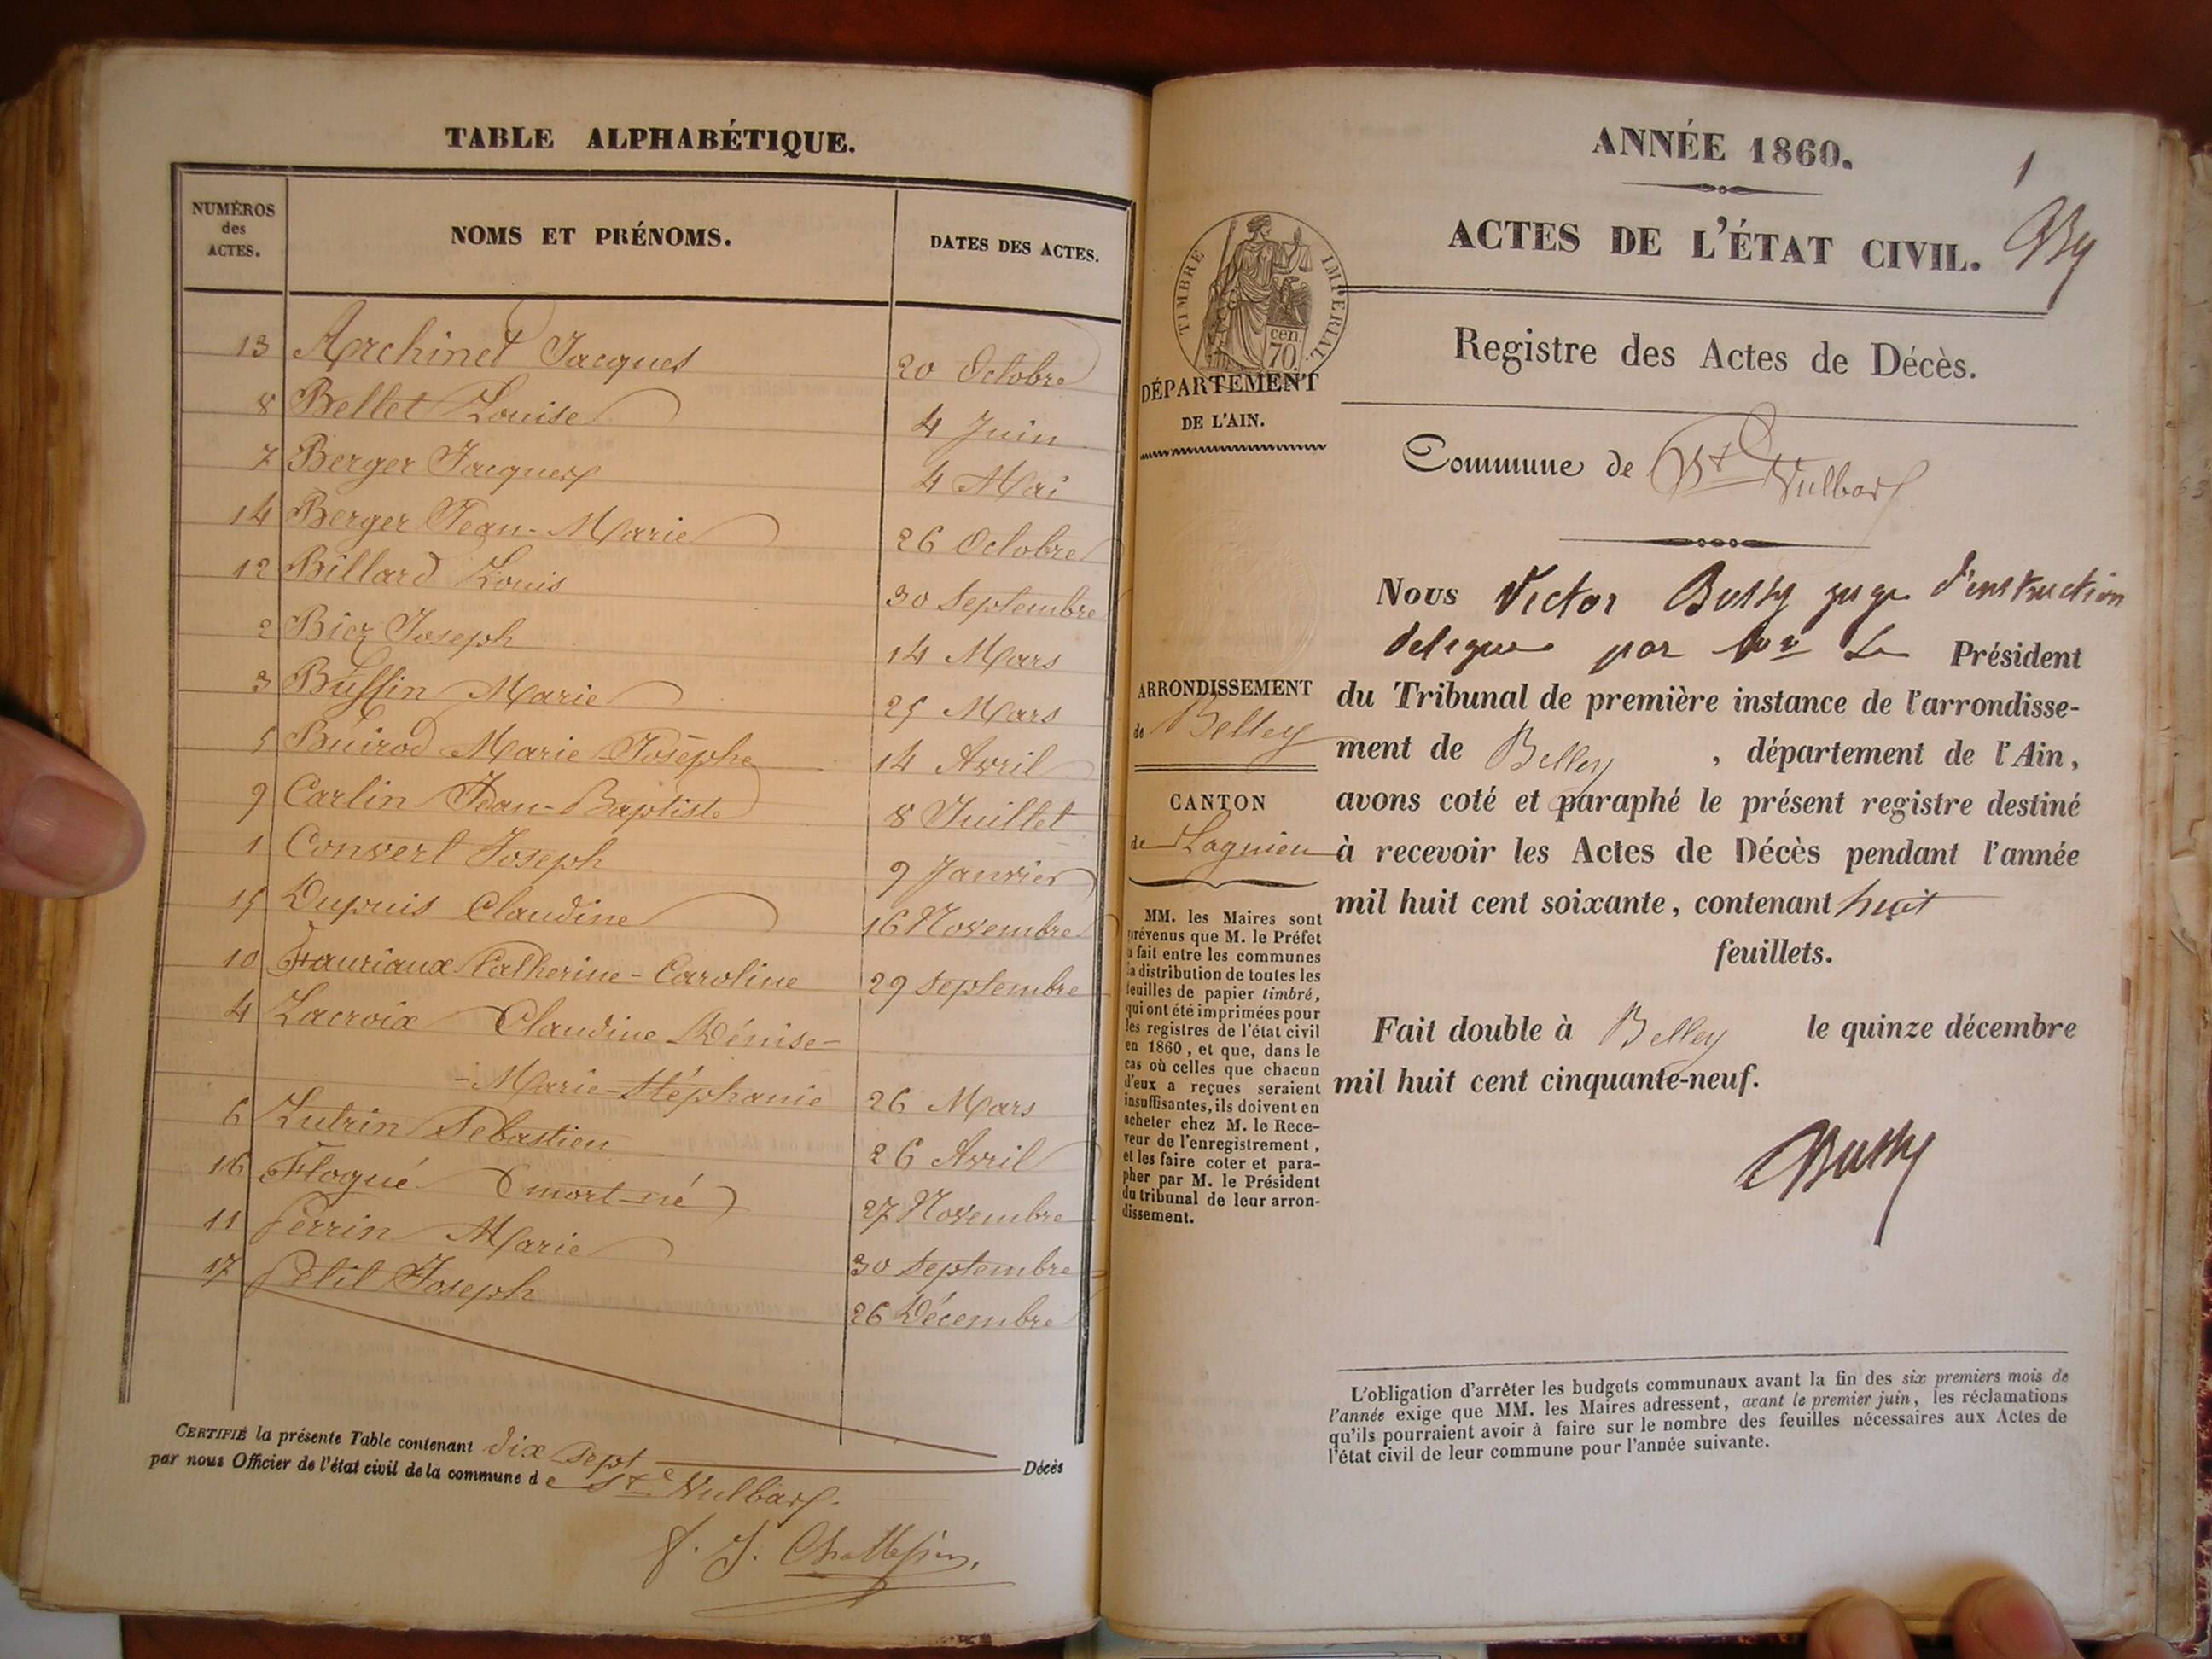 TABLE ALPHABÉTIQUE.
NUMÉROS des ACTES. NOMS ET PRÉNOMS. DATES DES ACTES.
13 Archinet Jacques 20 Octobre
8 Bellet Louise 4 Juin
7 Berger Jacques 4 Mai
14 Berger Jean-Marie 26 Octobre
12 Billard Louis 30 Septembre
2 Biez Joseph 14 Mars
3 Buffin Marie 25 Mars
5 Buirod Marie-Josèphe 14 Avril
9 Carlin Jean-Baptiste 8 Juillet
1 Convert Joseph 9 Janvier
15 Dupuis Claudine 16 Novembre
10 Fauriaux Catherine-Caroline 29 Septembre
4 Lacroix Claudine Dénise-
-Marie-Stéphanie 26 Mars
6 Lutrin Sébastien 26 Avril
16 Floqué (mort-né) 27 Novembre
11 Perrin Marie 30 Septembre
17 Petit Joseph 26 Décembre
CERTIFIÉ la présente Table contenant dix sept Décès
par nous Officier de l'état civil de la commune de St Vulbas.
ANNÉE 1860.
1
ACTES DE L'ÉTAT CIVIL.
By
TIMBRE IMPÉRIAL.
cen.
70.
Registre des Actes de Décès.
DÉPARTEMENT
DE L'AIN.
Commune de St Vulbas
Nous Victor Bussy juge d'instruction
délégué par Mr Le Président
du Tribunal de première instance de l'arrondisse-
ment de Belley, département de l'Ain,
avons coté et paraphé le présent registre destiné
à recevoir les Actes de Décès pendant l'année
mil huit cent soixante, contenant huit
feuillets.
Fait double à Belley le quinze décembre
mil huit cent cinquante-neuf.
Bussy
ARRONDISSEMENT
de Belley
CANTON
de Lagnieu
MM. les Maires sont
prévenus que M. le Préfet
a fait entre les communes
la distribution de toutes les
feuilles de papier timbré,
qui ont été imprimées pour
les registres de l'état civil
en 1860, et que, dans le
cas où celles que chacun
d'eux a reçues seraient
insuffisantes, ils doivent en
acheter chez M. le Rece-
veur de l'enregistrement,
et les faire coter et para-
pher par M. le Président
du tribunal de leur arron-
dissement.
L'obligation d'arrêter les budgets communaux avant la fin des six premiers mois de
l'année exige que MM. les Maires adressent, avant le premier juin, les réclamations
qu'ils pourraient avoir à faire sur le nombre des feuilles nécessaires aux Actes de
l'état civil de leur commune pour l'année suivante.